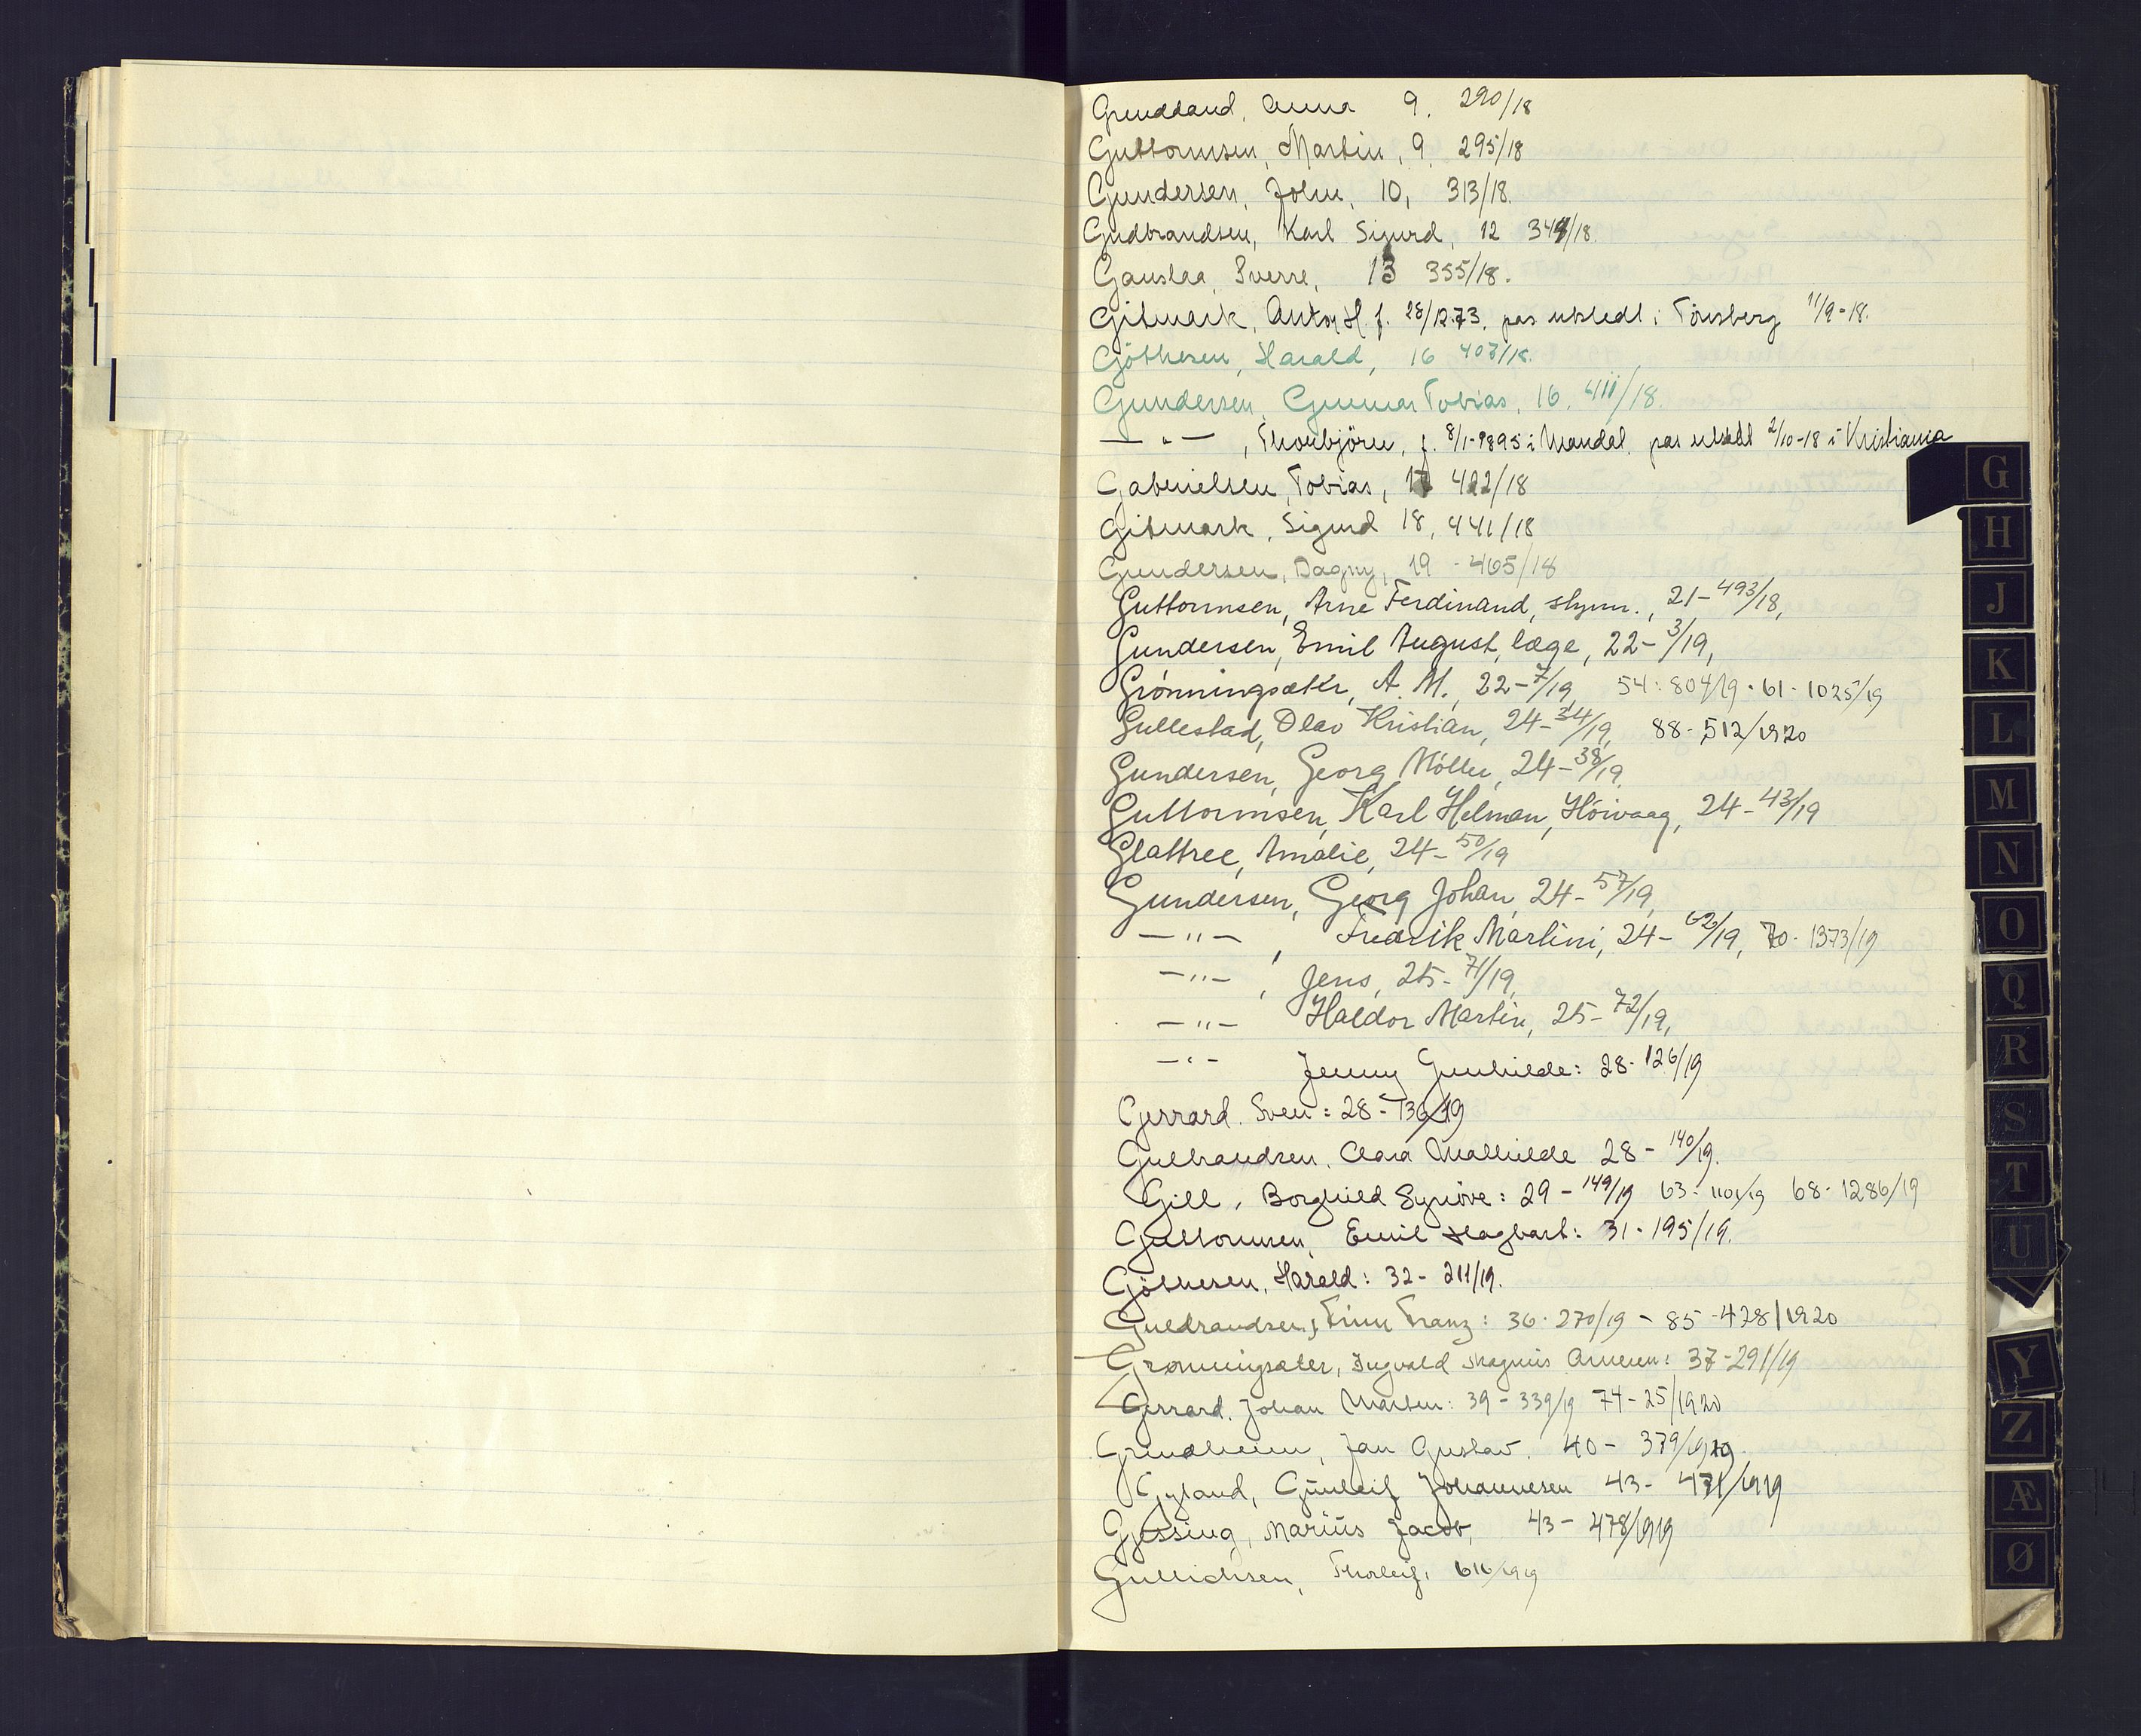 Grundland, Anna 9. 290/18
Guttormsen, Martin, 9. 295/18
Gundersen, John, 10, 313/18.
Gudbrandsen, Karl Sigurd, 12 344/18.
Gauslaa, Sverre, 13 355/18.
Gitmark, Anton H. f. 28/12.73. pas utstedt i Tönsberg 11/9-18.
Göthesen, Harald, 16 407/18.
Gundersen, Gunnar Tobias, 16. 411/18.
— " — , Thorbjörn, f. 8/1-1895 i Mandal. pas utstedt 2/10-18 i Kristiania
Gabrielsen, Tobias, 17 422/18
Gitmark, Sigurd 18, 441/18
Gundersen, Dagny, 19 - 465/18
Guttormsen, Arne Ferdinand, styrm., 21-493/18,
Gundersen, Emil August, læge, 22-3/19,
Grönningsæter, A. M., 22-7/19, 54: 804/19 · 61 - 1025/19
Gullestad, Olav Kristian, 24-34/19, 88 - 512/1920
Gundersen, Georg Möller, 24-38/19,
Guttormsen, Karl Helman, Höivaag, 24-43/19
Glattree, Amalie, 24-50/19
Gundersen, Georg Johan, 24-57/19,
— " — , Fredrik Martini, 24-62/19, 70 - 1373/19
— " — , Jens, 25-71/19,
— " — Haldor Martin, 25-72/19,
— " — Jenny Gunhilde: 28-126/19
Gerrard. Sven: 28-136/19
Gulbrandsen, Clara Mathilde 28-140/19.
Gill, Borghild Synöve: 29-149/19 63: 1101/19 68 - 1286/19
Guttormsen, Emil Hagbart: 31-195/19.
Göthesen, Harald: 32-211/19.
Guldrandsen, Finn Franz: 36-270/19 - 85 - 428/1920
Grønningsæter, Ingvald Magnus Arnesen: 37-291/19
Gerrard, Johan Marten: 39-339/19 74-25/1920
Grindheim, Jan Gustav. 40 - 379/1919
Gyland, Gunleif Johannesen 43 - 471/1919
Gjessing, Marius Jacob, 43 - 478/1919
Gullichsen, Thorleif, 616/1919
G
H
J
K
L
M
N
O
Q
R
S
T
U
Y
Z
Æ
Ø